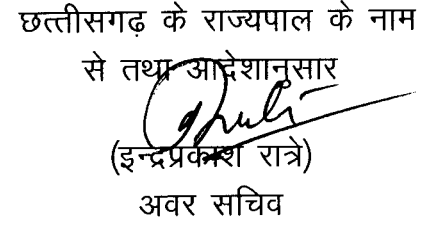 छत्तीसगढ़ के राज्यपाल के नाम
से तथा आदेशानुसार
(इन्द्रप्रकाश रात्रे)
अवर सचिव